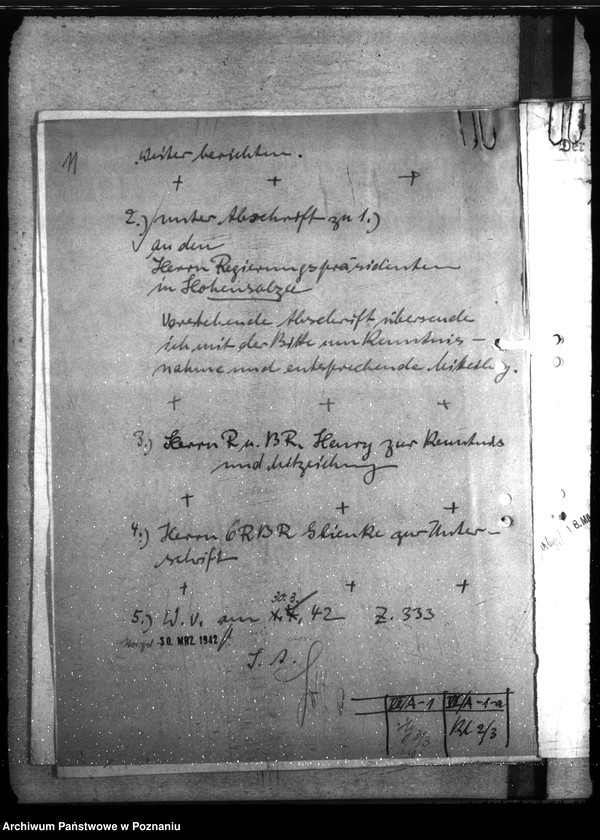 11
weiter berichten.
+ + +
2.) unter Abschrift zu 1.)
an den
Herrn Regierungspräsidenten
in Hohensalza
Vorstehende Abschrift übersende
ich mit der Bitte um Kenntnis-
nahme und entsprechende Mitteilg.
+ + +
3.) Herrn R. u. BR. Henry zur Kenntnis
und Mitzeichnung
+ + +
4.) Herrn ORBR Glienke zur Unter-
schrift
+ + +
30.3.
5.) W. v. am 42 Z. 333
30. MRZ. 1942
I. A.
VI/A-1 VI/A-1-a
2/3
Der
18. MR
Archiwum Państwowe w Poznaniu